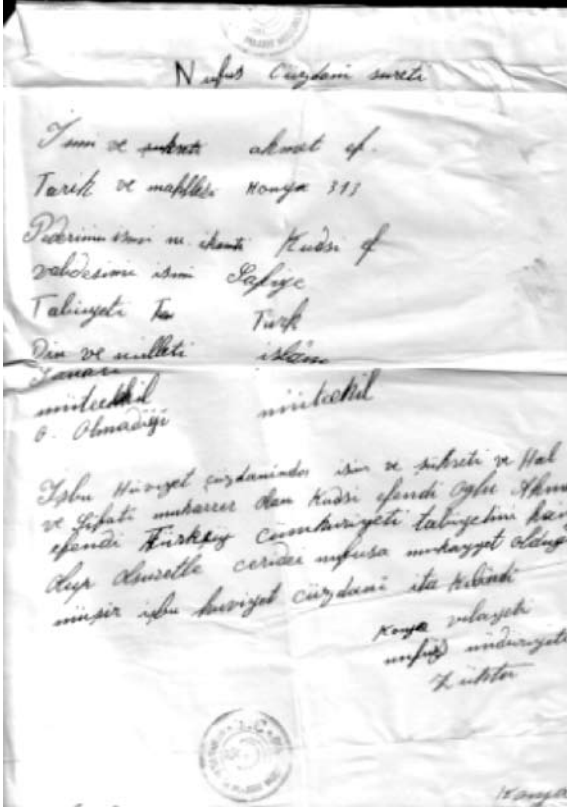 Nufus Cüzdani sureti
Ismi ve şuhreti ahmet ef.
Tarih ve mahllesi Konya 313
Pederinin ismi Kudsi ef
validesinin ismi Safiye
Tabiiyeti Turk
Din ve milleti islâm
müteehhil müteehil
o. Olmadiği
Işbu Huviyet cüzdaninda isim ve şuhreti ve Hal
ve Sifati muharrer olan Kudsi efendi Oglu Ahme
efendi Türkiy cümhuriyeti tabiyetini
olup ceridei nufusa mukayyet oldug
işbu huviyet cüzdani ita Kilindi
Konya vilayeti
nufus müduriyeti
Konya